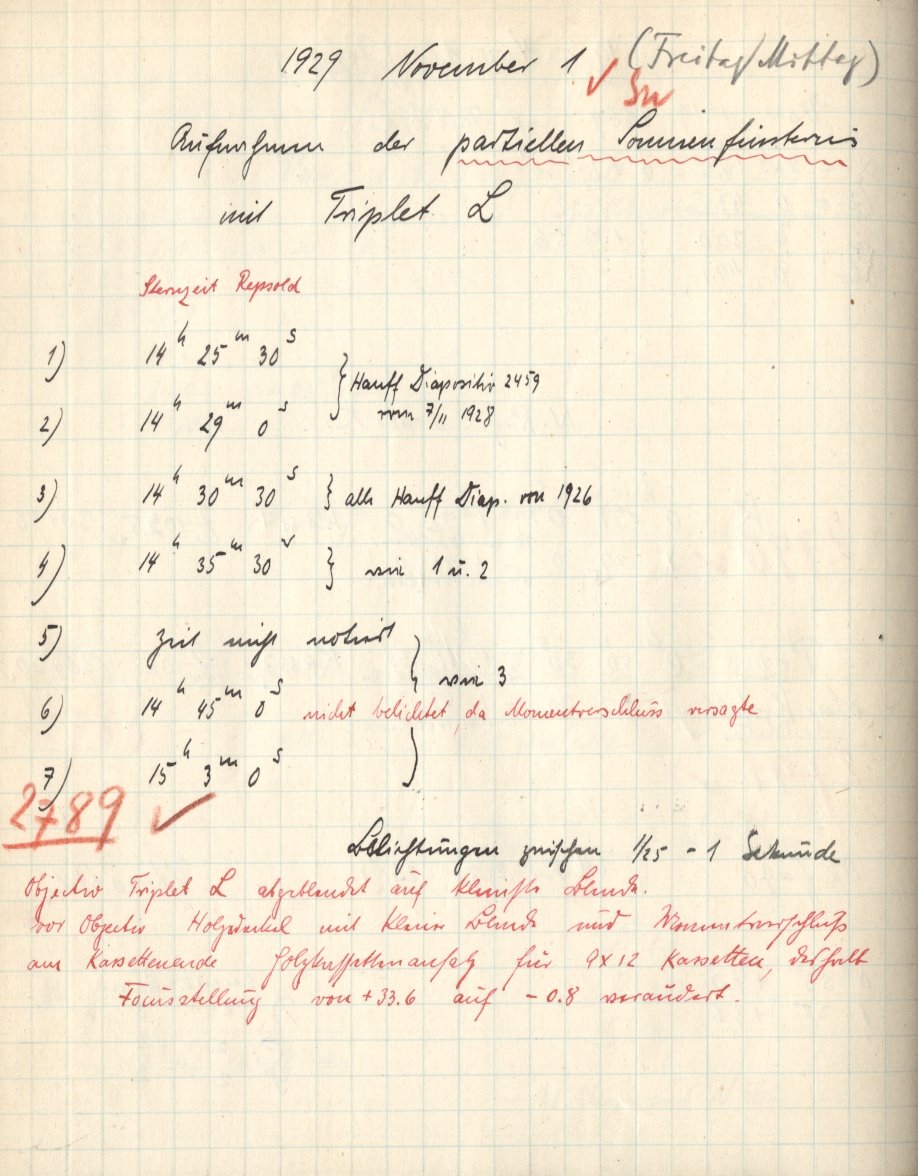 1929 November 1 (Freitag/Mittag)
Sn
Aufnahmen der partiellen Sonnenfinsternis
mit Triplet L
Sternzeit Repsold
1) 14h 25m 30s
} Hauff Diapositiv 2459
vom 7/11 1928
2) 14h 29m 0s
3) 14h 30m 30s } alle Hauff Diap. von 1926
4) 14h 35m 30s } wie 1 u. 2
5) Zeit nicht notiert
} wie 3
6) 14h 45m 0s nicht belichtet, da Momentverschluss versagte
7) 15h 3m 0s
2789
Belichtungen zwischen 1/25 - 1 Sekunde
Objectiv Triplet L abgeblendet auf kleinste Blende.
vor Objectiv Holzdeckel mit kleiner Blende und Momentverschluß
am Kassettenende Holzkassettenansatz für 9x12 Kassetten, deshalb
Focusstellung von +33.6 auf -0.8 verändert.